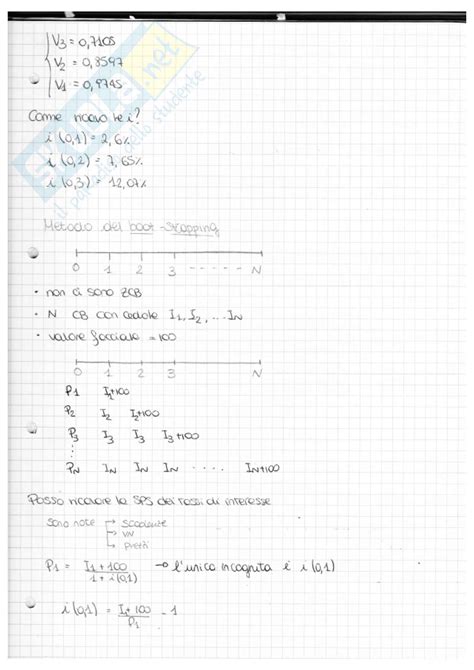 V3 = 0,7105
V2 = 0,8597
V1 = 0,9745
Come ricavo le i?
i (0,1) = 2,6%
i (0,2) = 7,65%
i (0,3) = 12,07%
Metodo del boot-strapping
0 1 2 3 ----- N
• non ci sono ZCB
• N CB con cedole I1, I2, ... IN
• valore facciale = 100
0 1 2 3 N
P1 I1+100
P2 I2 I2+100
P3 I3 I3 I3+100
⋮
PN IN IN IN ..... IN+100
Posso ricavare la SPS dei tassi di interesse
Sono note → scadenze
→ VN
→ prezzi
P1 = I1+100 / 1+i(0,1) → l'unica incognita è i(0,1)
i(0,1) = I1+100 / P1 - 1
skuola.net
il paradiso dello studente